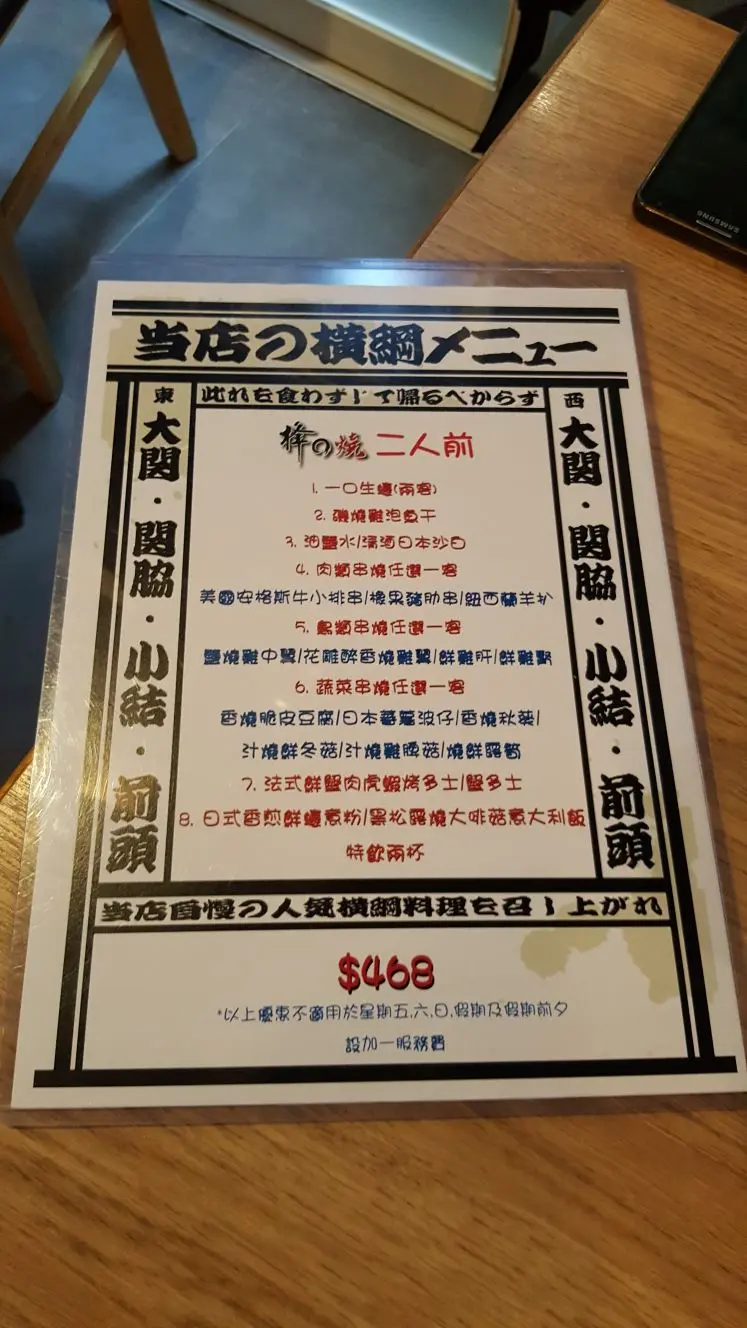 当店の横綱メニュー
此れを食わずして帰るべからず
東
大関・関脇・小結・前頭
西
大関・関脇・小結・前頭
の燒 二人前
1. 一口生蠔(兩客)
2. 磯燒雞泡魚干
3. 油鹽水/清酒日本沙白
4. 肉類串燒任選一客
美國安格斯牛小排串/橡果豬肋串/紐西蘭羊扒
5. 鳥類串燒任選一客
鹽燒雞中翼/花雕醉香燒雞翼/鮮雞肝/鮮雞腎
6. 蔬菜串燒任選一客
香燒脆皮豆腐/日本蕃薯波仔/香燒秋葵/
汁燒鮮冬菇/汁燒雞脾菇/燒鮮露筍
7. 法式鮮蟹肉虎蝦烤多士/蟹多士
8. 日式香煎鮮蠔意粉/黑松露燒大啡菇意大利飯
特飲兩杯
当店自慢の人気横綱料理を召し上がれ
$468
*以上優惠不適用於星期五,六,日,假期及假期前夕
設加一服務費
SAMSUNG